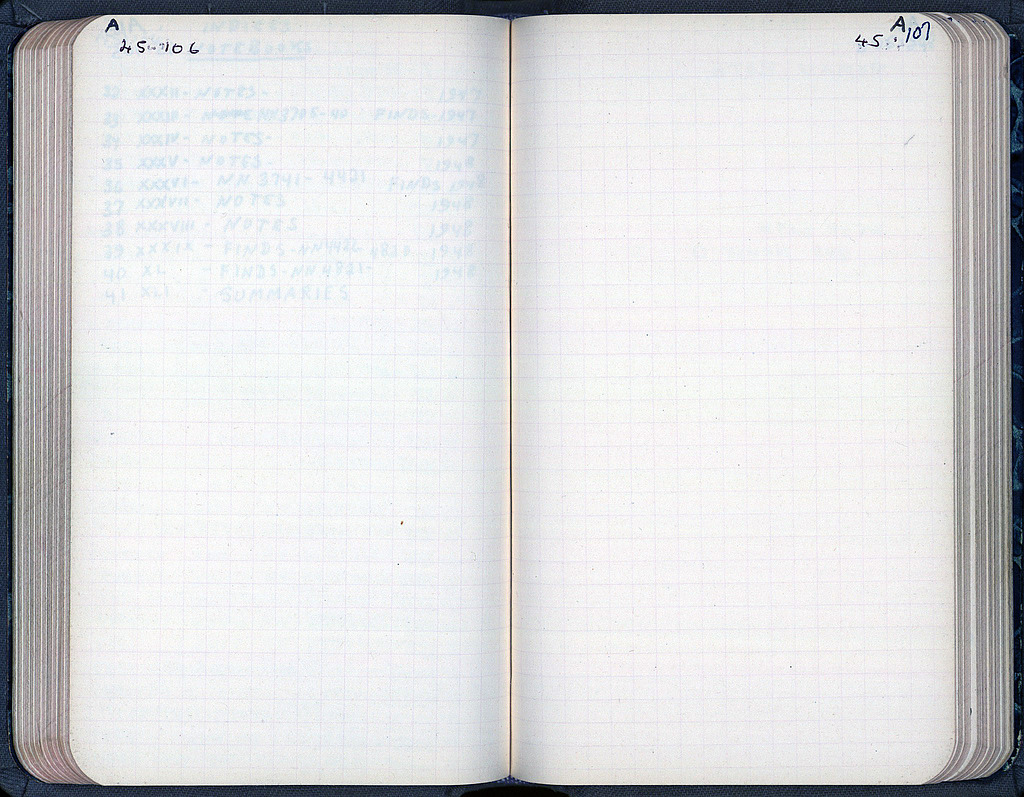 A
45-106
INDICES
NOTEBOOKS
32 XXXII - NOTES - 1947
33 XXXIII - NN3705-40 FINDS 1947
34 XXXIV - NOTES - 1947
35 XXXV - NOTES - 1948
36 XXXVI - NN 3741 - 4421 FINDS 1948
37 XXXVII - NOTES 1948
38 XXXVIII - NOTES 1948
39 XXXIX - FINDS - NN4422 4820 1948
40 XL - FINDS - NN 4821- 1948
41 XLI - SUMMARIES
A
45-107